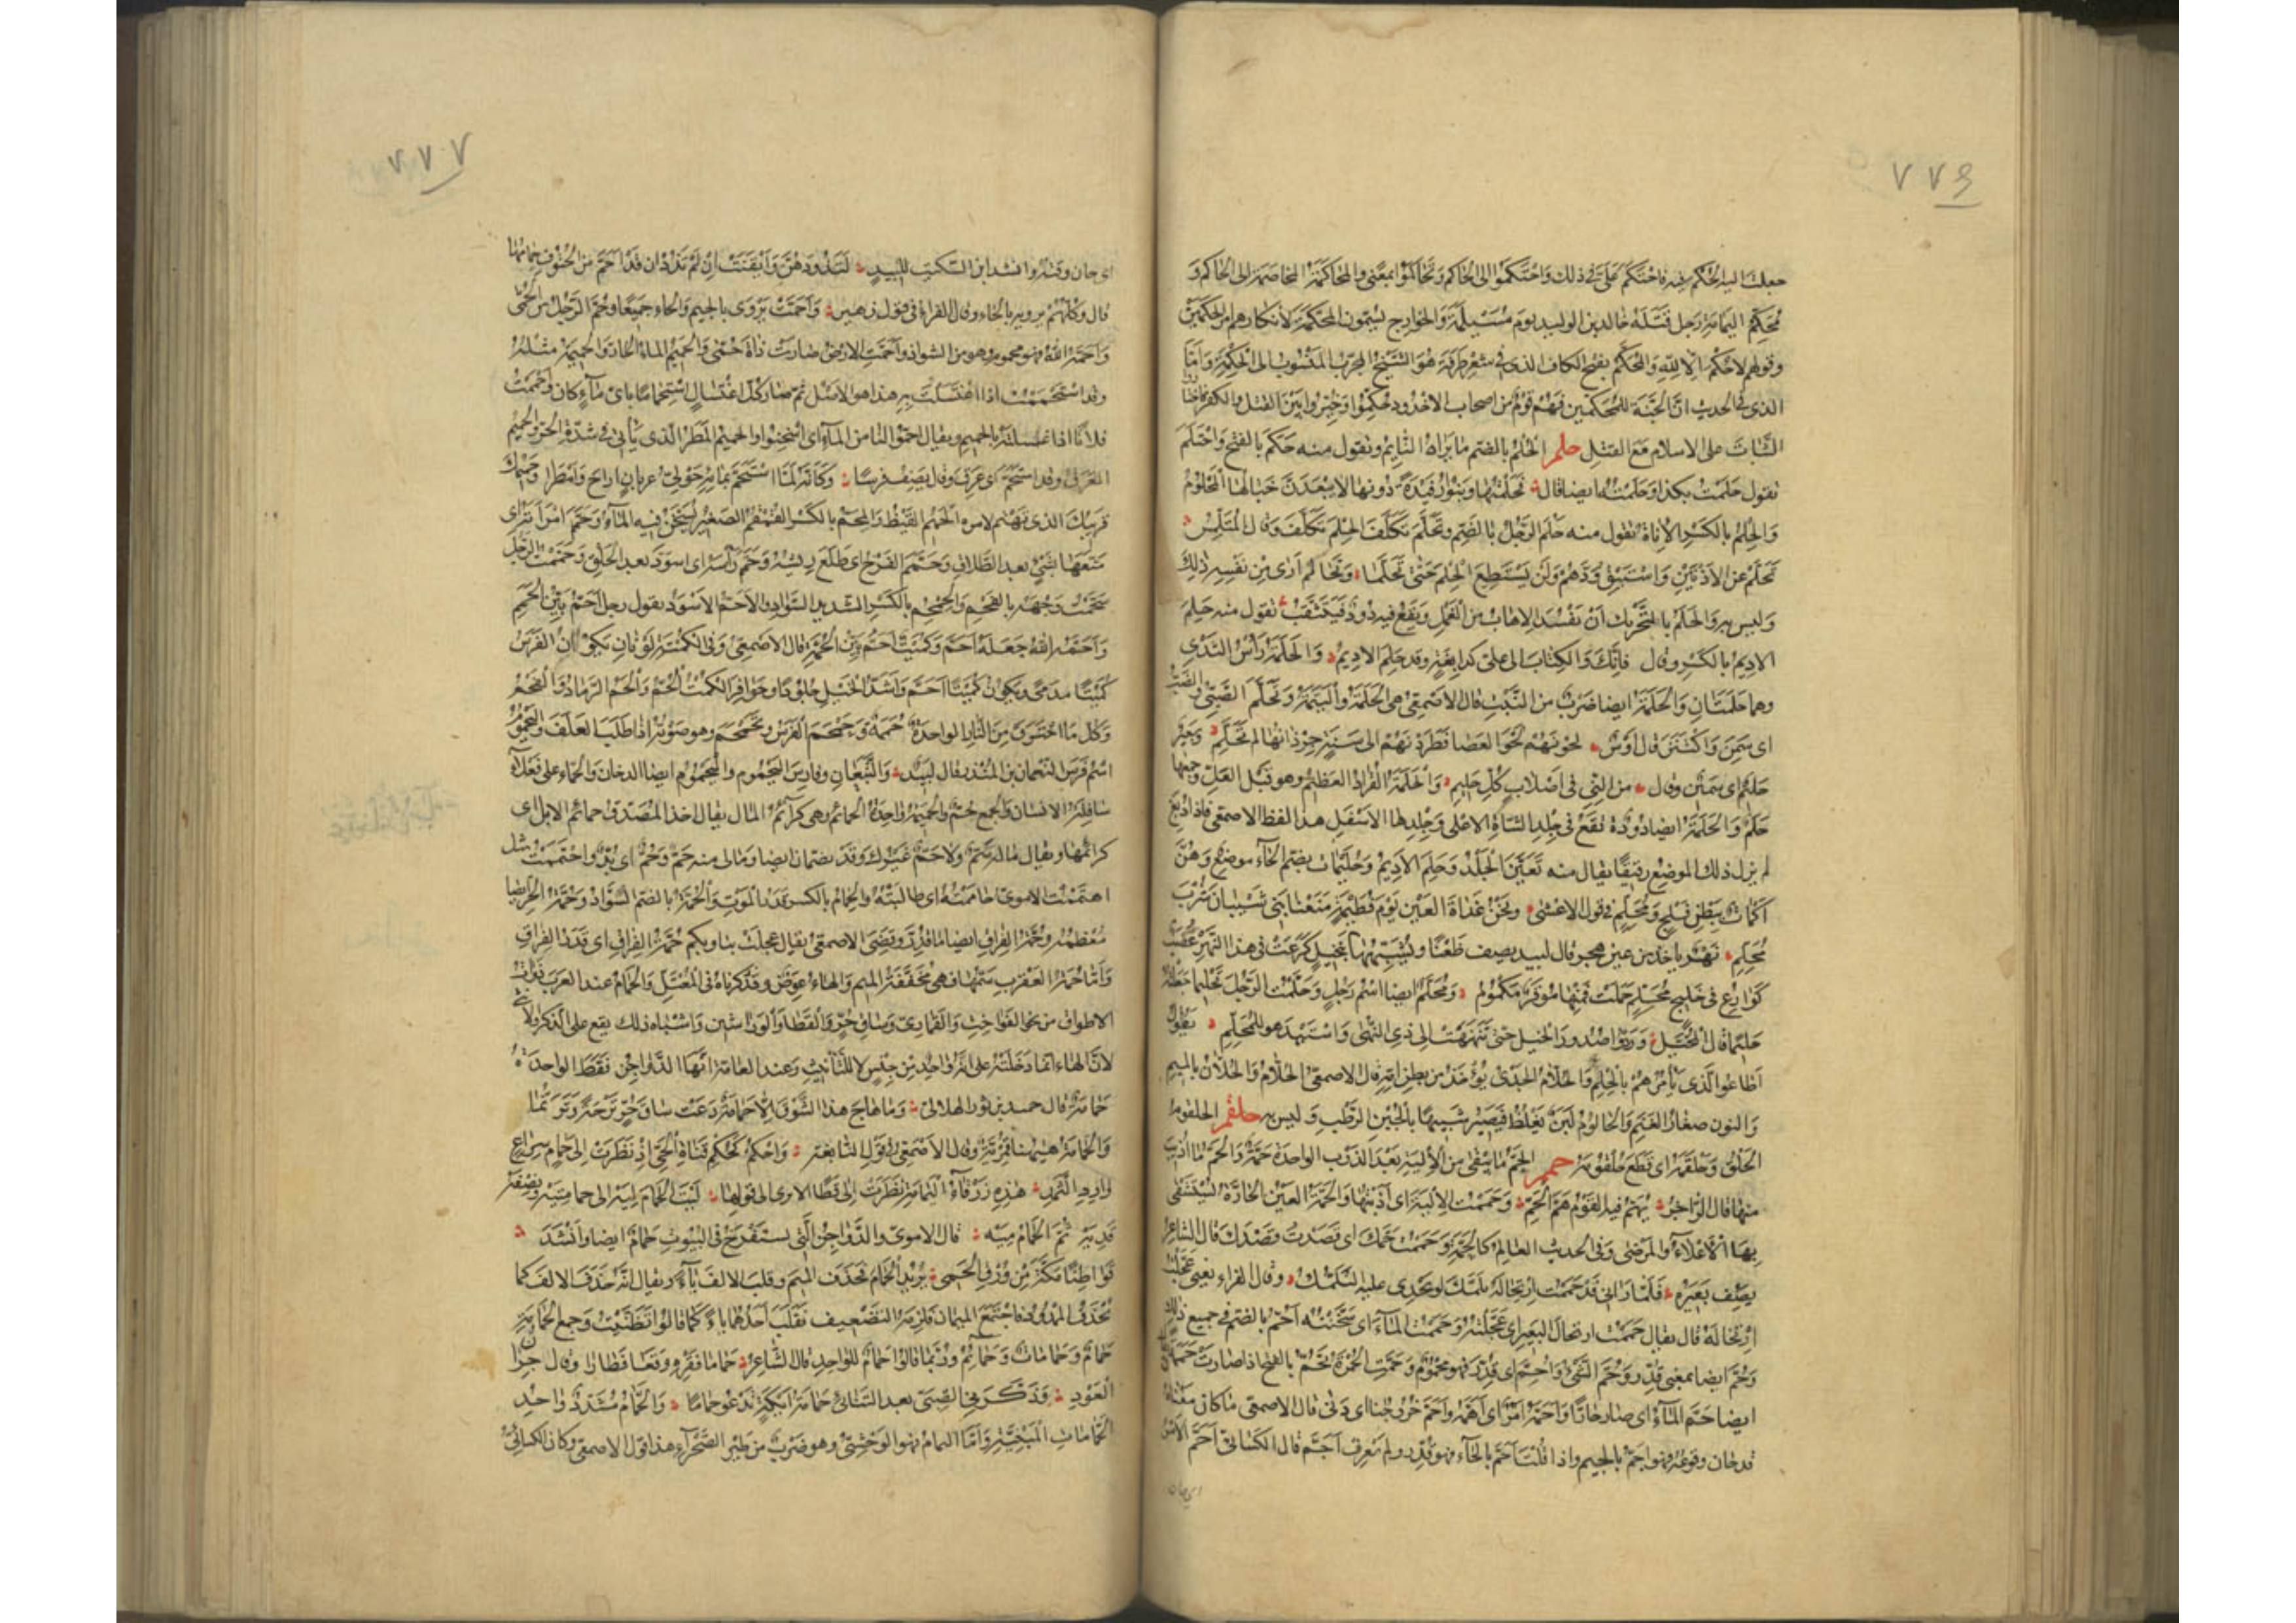 ٧٧٦
جعلت اليه الحُكْم فيه فاحتكم عَلَيّ في ذلك وَاحْتَكَمُوا الى الحَاكِم وَتَحَاكَمُوْا بمعنًى والمُحَاكَمَة المخاصمة الى الحاكم وَ
مُحَكَّم اليمامة رجل قَتَلَهُ خالد بن الوليد يوم مُسَيْلِمَة وَالخوارج يسمون المُحَكِّمَة لانكارهم امر الحكمين
وقولهم لاحُكْم الّا لِلّهِ وَالمُحَكَّم بفتح الكاف الذى في شعر طرفة هُوَ الشَّيْخ المجرّب المَنْسُوب الى الحِكْمَة وَاَمّا
الذى في الحديث انّ الجَنّة للمُحَكَّمين فَهُمْ قومٌ من اصحاب الاخدود حُكِّمُوْا وَخُيِّروا بَيْنَ القتل والكفر فاختاروا
الثَّبات على الاسلام مَعَ القتل حلم الحُلْم بالضم مَا يَرَاهُ النّائِم وتقول منه حَلَمَ بالفتح وَاحْتَلَمَ
تقول حَلَمْتُ بكذا وَحَلَمْتُهُ ايضا قال فَحَلَمْتُها وَبَنُو رُفَيْدَةَ دُونَها لايَبْعَدَنَّ خَيَالُها المَحْلُومُ
وَالحِلْمُ بالكَسْرِ الاَنَاة تقول منه حَلُمَ الرَّجُلُ بالضَّم وتَحَلَّمَ تَكَلَّفَ الحِلْمَ وَقال المُتَلَمِّس
تَحَلَّمْ عن الاَدْنَيْنَ وَاسْتَبْقِ وُدَّهُمْ وَلَنْ يَسْتَطِيعَ الحِلْمَ حَتّٰى تَحَلَّمَا وَتَحَالَمَ اَرَى مِنْ نَفْسِهِ ذٰلِكَ
وَليس به وَالحَلَمُ بالتَّحْرِيك اَنْ يَفْسُدَ الاِهَابُ من العَمَل وَيَقَعُ فيه دُودٌ فَيَتَثَقَّبُ تقول منه حَلِمَ
الاديم بالكَسْرِ وقال فَاِنَّكَ وَالكِتَابَ الى عَلِىٍّ كدابغةٍ وقد حَلِمَ الاديمُ وَالحَلَمَةُ رَأْسُ الثَّدْىِ
وهما حَلَمَتَانِ وَالحَلَمَةُ ايضا ضَرْبٌ من النَّبْتِ قال الاَصْمَعِىّ هى الحَلَمَةُ وَاليَنَمَةُ وَتَحَلَّمَ الصَّبِىُّ والضَبُّ
اى سَمِنَ وَاكْتَنَزَ قال أَوْسٌ لَحَوْنَهُمْ لَحْوَ العَصَا فَطَرَدْنَهُمْ الى سَنَةٍ جِرْذَانُها لم تَحَلَّمِ وَبَعِيرٌ
حَلِيمٌ اى سَمِيْن وقال من النِّيِّ فى اَصْلابِ كُلِّ حَلِيمِ وَالحَلَمَةُ القُرَادُ العَظِيمُ وهو قَبْلَ العَلِّ وجمعها
حَلَمٌ وَالحَلَمَةُ ايضا دُودَة تَقَعُ فى جِلْدِ الشّاةِ الاعلى وَجِلْدِها الاَسْفَلِ هذا لفظ الاصمعى فاذا دُبِغَ
لم يزل ذلك الموضع رقيقًا يقال منه تَعَيَّنَ الجِلْدُ وَحَلِمَ الاَدِيمُ وَحُلَيْمَات بضم الحاء موضع وَهُنَّ
اَكَمَاتٌ بِبَطْنِ فَلْجٍ وَمُحَلِّمٌ فى قول الاعشى وَنَحْنُ غَدَاةَ العَيْنِ يَوْمَ فُطَيْمَةٍ مَنَعْنَا بَنِى شَيْبَانَ شِرْبَ
مُحَلِّمِ نَهْرٌ ياخذ من عين هجر قال لبيد يصف ظُعُنًا وَيُشَبِّهُهَا بنَخِيلٍ كَرَعَتْ فى هذا النَّهْرِ عُصَبٌ
كَوَارِعُ فى خَلِيجِ مُحَلِّمٍ حَمَلَتْ فَمِنْهَا مُوقَرٌ مَكْمُومُ وَمُحَلِّمٌ ايضا اسْم رَجُلٍ وَحَلَّمْتُ الرَّجُلَ تَحْلِيمًا جَعَلْتُهُ
حَلِيْمًا قال المُخَبَّلُ وَرَدُّوا صُدُورَ الخَيْلِ حَتّٰى تَنَهْنَهَتْ الى ذِى النُّهٰى وَاسْتَيْدَهُوا لِلْمُحَلِّمِ يَقُوْلُ
اَطَاعُوا الَّذِى يَأْمُرُهُمْ بالحِلْمِ وَالحُلَّامُ الجَدْىُ يُؤْخَذُ من بَطْنِ اُمِّهِ قال الاصمعى الحُلَّامُ وَالحُلَّانُ بالميم
وَالنون صغار الغَنَمِ وَالحَالُومُ لَبَنٌ يَغْلُظُ فَيَصِيْرُ شَبِيهًا بالجُبْنِ الرَّطْبِ وَليس به حلقم الحلقوم
الحَلْقُ وَحَلْقَمَهُ اى قَطَعَ حُلْقُومَهُ حمم الحَمّ مَا يَبْقٰى من الاَلْيَةِ بَعْدَ الذَّوْبِ الواحدة حَمَّةٌ وَالحَمُّ مَا اُذِيْبَ
منها قال الرّاجزُ يُهَمُّ فيه القَوْمُ هَمَّ الحَمِّ وَحَمَمْتُ الاَلْيَةَ اى اَذَبْتُها وَالحَمَّةُ العَيْنُ الحَارَّةُ يَسْتَشْفِى
بِهَا الاَعِلّاءُ وَالمَرْضٰى وَفى الحديث العَالِمُ كالحَمَّةِ وَحَمَمْتُ حَمَّكَ اى قَصَدْتُ قَصْدَكَ قال الشاعر
يصف بَعِيْرَه فَلَمَّا رَاٰنِى قَدْ حَمَمْتُ ارْتِحَالَهُ تَلَمَّكَ لو يُجْدِى عليه التَّلَمُّكُ وقال الفراء يعنى عَجَّلْتُ
ارْتِحَالَهُ قال يقال حَمَمْتُ ارتحالَ البَعِيرِ اى عَجَّلْتُهُ وَحَمَمْتُ المَاءَ اى سَخَّنْتُهُ اَحُمُّ بالضم فى جميع ذٰلِكَ
وَحُمَّ ايضا بمعنى قُدِّر وَحُمَّ الشَّىْءُ وَاُحِمَّ اى قُدِّرَ فهو مَحْمُومٌ وَحَمَّتِ الجَمْرَةُ تَحَمُّ بالفتح اذا صارت حُمَمَةً
ايضا حَمَّ المَاءُ اى صار حَارًّا وَاَحَمَّهُ اَمْرٌ اى اَهَمَّهُ وَاَحَمَّ خُرُوجُنَا اى دَنَى قال الاصمعى مَا كَان مَعْنَاهُ
قد حان وقوعُه فهو اَجَمَّ بالجيم واذا قُلْتَ اَحَمَّ بالحَاءِ فهو قُدِّر ولم يَعْرِفْ اَحَمَّ قال الكسائىّ اَحَمَّ الاَمْرُ
اى حان
٧٧٧
اى حان وقته وانشد ابن السِّكِيت للبيدٍ لِتَذُودَهُنَّ وَاَيْقَنَتْ اِنْ لَمْ تَذُدْ ان قَدْ اَحَمَّ من الحُتُوفِ حِمَامُها
قال وَكُلُّهُمْ يرويه بالحَاءِ وقال الفَرَاءُ فى قول زهير وَاَحَمَّتْ يُرْوٰى بالجيم وَالحاءِ جَمِيْعًا وحُمَّ الرَّجُلُ من الحُمّٰى
وَاَحَمَّهُ اللهُ فهو مَحموم وهو من الشواذ واَحَمَّتِ الاَرْضُ صَارَتْ ذَاتَ حُمّٰى وَالحَمِيمُ المَاءُ الحَارّ وَالحَمِيمَةُ مثلُهُ
وقد اسْتَحْمَمْتُ اذا اغْتَسَلْتَ بِهِ هذا هو الاَصْل ثم صار كُلُّ اغْتِسَالٍ اسْتِحْمَامًا باىّ مَاءٍ كان وَاَحْمَمْتُ
فلانًا اذا غسلته بالحميم ويقال اَحِمُّوا لنا من المَاءِ اى اَسْخِنُوا وَالحَمِيم المَطَرُ الّذى يَأْتِى فى شِدَّةِ الحَرِّ وَالحَمِيمُ
العَرَق وقد اسْتَحَمَّ اى عَرِقَ وَقال يَصِفُ فَرَسًا وَكَاَنَّه لَمَّا اسْتَحَمَّ بمَائِهِ حَوْلِىُّ غربانٍ اراحَ وَاَمْطَرَا وَحَمِيْمُكَ
قريبُكَ الّذى تَهْتَمّ لامره الحَمِيمُ القَيْظُ وَالمِحَمُّ بالكَسْرِ القُمْقُمُ الصَغِيرُ يُسَخَّنُ فيه المَاءُ وَحَمَّمَ امْرَاَتَهُ اى
مَتَّعَهَا بِشَىْءٍ بعد الطَّلَاقِ وَحَمَّمَ الفَرْخُ اى طَلَعَ رِيْشُهُ وَحَمَّمَ رَأْسُهُ اى اسْوَدَّ بعد الحَلْقِ وَحَمَّمْتُ الرَّجُلَ
سَخَّمْتُ وَجْهَهُ بالفَحْمِ وَالحِمْحِمُ بالكَسْرِ الشديدُ السَّوَادِ وَالاَحَمُّ الاَسْوَدُ تقول رجل اَحَمُّ بَيِّنُ الحَمَمِ
وَاَحَمَّهُ اللهُ جَعَلَهُ اَحَمَّ وَكُمَيْتٌ اَحَمُّ بَيِّنُ الحُمَّةِ قال الاصمعى وَفى الكُمْتَةِ لَوْنَانِ يكون الفَرَسُ
كُمَيْتًا مُدَمًّى ويكون كُمَيْتًا اَحَمَّ وَاَشَدُّ الخَيْلِ جُلُوْدًا وحَوَافِرَ الكُمْتُ الحُمُّ وَالحُمَمُ الرَّمَادُ وَالفَحْمُ
وَكُلُّ مَا احْتَرَقَ مِنَ النَّارِ الواحدَةُ حُمَمَةٌ وَحَمْحَمَ الفَرَسُ وتَحَمْحَمَ وهو صَوْتُهُ اذا طَلَبَ العَلَفَ وَاليَحْمُوْمُ
اسْم فَرَسِ النُّعْمَانِ بنِ المُنْذِرِ قال لَبِيْدٌ وَالتُّبَّعَانِ وَفارس اليَحْمُوم وَاليَحْمُومُ ايضا الدخان وَالحَمّاءُ على فَعْلاء
سَافِلَةُ الانْسان وَالجمع حُمٌّ وَالحَمِيمَةُ وَاحِدَةُ الحَمَائِمِ وهى كَرَائِمُ المال يقال اخذ المُصَدّق حَمائِم الابل اى
كرائِمَها ويقال مَالَهُ سَمٌّ وَلا حَمٌّ غَيْرُكَ وَقَدْ يضمان ايضا ومَالِى منه حَمٌّ وَحُمٌّ اى بُدٌّ وَاحْتَمَمْتُ مثل
اهتَمَمْتُ الاموىّ حَامَمْتُهُ اى طَالَبْتُه وَالحِمَامُ بالكسر قَدَرُ المَوْتِ وَالحُمَّةُ بالضم السَّوَادُ وَحُمَّةُ الحَرِّ ايضا
مُعْظَمُه وَحُمَّةُ الفِرَاقِ ايضا مَا قُدِّرَ وَقُضِىَ الاصمعى يقال عَجِلَتْ بنا وبكم حُمَّةُ الفِرَاقِ اى قَدَرُ الفِرَاقِ
وَاَمّا حُمَةُ العَقْرَبِ سَمُّها فهى مُخَفَّفَةُ المِيم وَالهاءُ عِوَضٌ وَقد ذكرناه فى المُعْتَلّ وَالحَمَامُ عند العَرَبِ ذَوَاتُ
الاطواق من نحو الفَوَاخِتِ وَالقَمَارِىِّ وَسَاقِ حُرٍّ وَالقَطَا وَالوَرَاشِين وَاشْبَاه ذلك يقع على الذَّكَرِ والاُنْثٰى
لانّ الهَاءَ انّما دَخَلَتْه على اَنّه وَاحِدٌ مِنْ جِنْسٍ لا لِلتَّأْنِيثِ وَعند العَامَّة اَنّها الدَّوَاجِنُ فَقَط الواحدَةُ
حَمَامَةٌ قال حميد بن ثور الهلالىّ وَمَا هَاجَ هذا الشَّوْقَ اِلّا حَمَامَةٌ دَعَتْ سَاقَ حُرٍّ تَرْحَةً وَتَرَنُّمَا
وَالحَمَامَة هٰهُنَا قُمْرِيَّةٌ وَقال الاَصْمَعِىُّ فى قَوْلِ النّابِغَةِ وَاحْكُمْ كَحُكْمِ فَتَاةِ الحَىِّ اِذْ نَظَرَتْ الى حَمَامٍ سِرَاعٍ
وَارِدِ الثَّمَدِ هٰذِهِ زَرْقَاءُ اليَمَامَةِ نَظَرَتْ اِلَى قَطًا الا ترى الى قولها لَيْتَ الحَمَامَ لِيَهْ الى حمامتِيَهْ وَنِصْفَهُ
قَدِيَهْ تَمَّ الحَمَامُ مِيَهْ قال الاموىّ والدَّوَاجِنُ الَّتِى تستفرخ فى البُيُوتِ حَمَامٌ ايضا وانْشَدَ
قَوَاطِنًا مَكَّةَ مِنْ وُرْقِ الحَمِى يُرِيْدُ الحَمَامَ فحَذَفَ المِيمَ وَقلبَ الالف يَاءً ويقال انّه حَذَفَ الالف كما
تُحْذَفُ المَمْدُوْدُ فاجْتَمَعَ الميمان فَلَزِمَهُ التَّضْعِيف فَقَلَبَ اَحَدَهُمَا يَاءً كَمَا قَالُوْا تَظَنَّيْتُ وَجمع الحَمَامَةِ
حَمَامٌ وَحَمَامَاتٌ وَحَمَائِمُ وَرُبَّمَا قَالُوا حَمَامٌ لِلوَاحِدِ قال الشّاعِرُ حَمَامَا قَفْرَةٍ وَقَعَا فَطَارَا وَقال جِرَانُ
العَوْدِ وَذَكَّرَنِى الصِّبٰى بعد التَّنَائِى حَمَامَةُ اَيْكَةٍ تَدْعُو حَمَامًا وَالحَمَّامُ مُشَدَّدٌ وَاحِدُ
الحَمَّامَاتِ المَبْنِيَّةِ وَاَمَّا اليَمَامُ فهو الوَحْشِىُّ وهو ضَرْبٌ من طَيْرِ الصَّحْرَاءِ هذا قول الاصمعى وَكَانَ الكسائىُّ